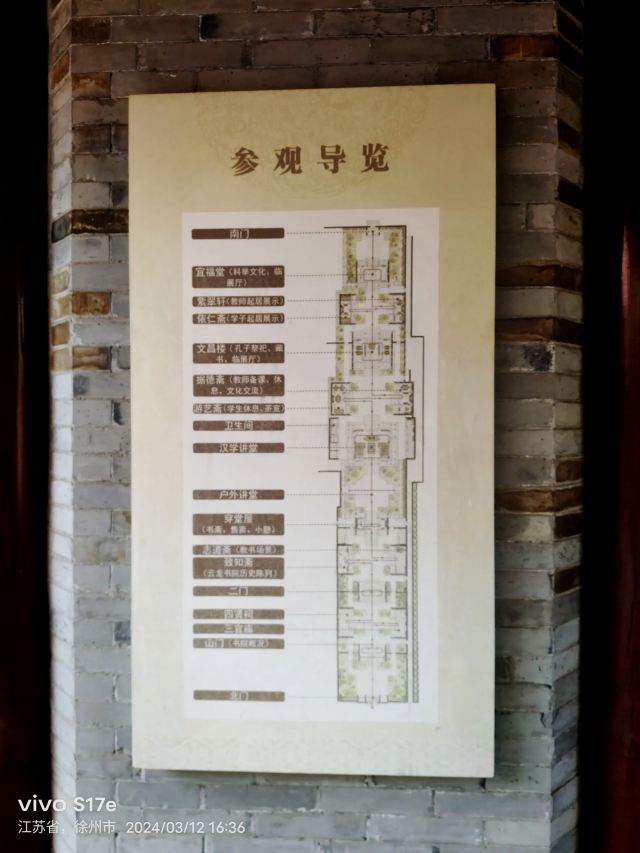 参观导览
南门
宜福堂（科举文化、临
展厅）
紫翠轩（教师起居展示）
依仁斋（学子起居展示）
文昌楼（孔子祭祀、藏
书、临展厅）
据德斋（教师备课、休
息、文化交流）
游艺斋（学生休息、茶室）
卫生间
汉学讲堂
户外讲堂
穿堂屋
（书斋，售卖、小憩）
志道斋（教书场景）
致知斋
（云龙书院历史陈列）
二门
四贤祠
三官庙
山门（书院概况）
北门
vivo S17e
江苏省，徐州市 2024/03/12 16:36